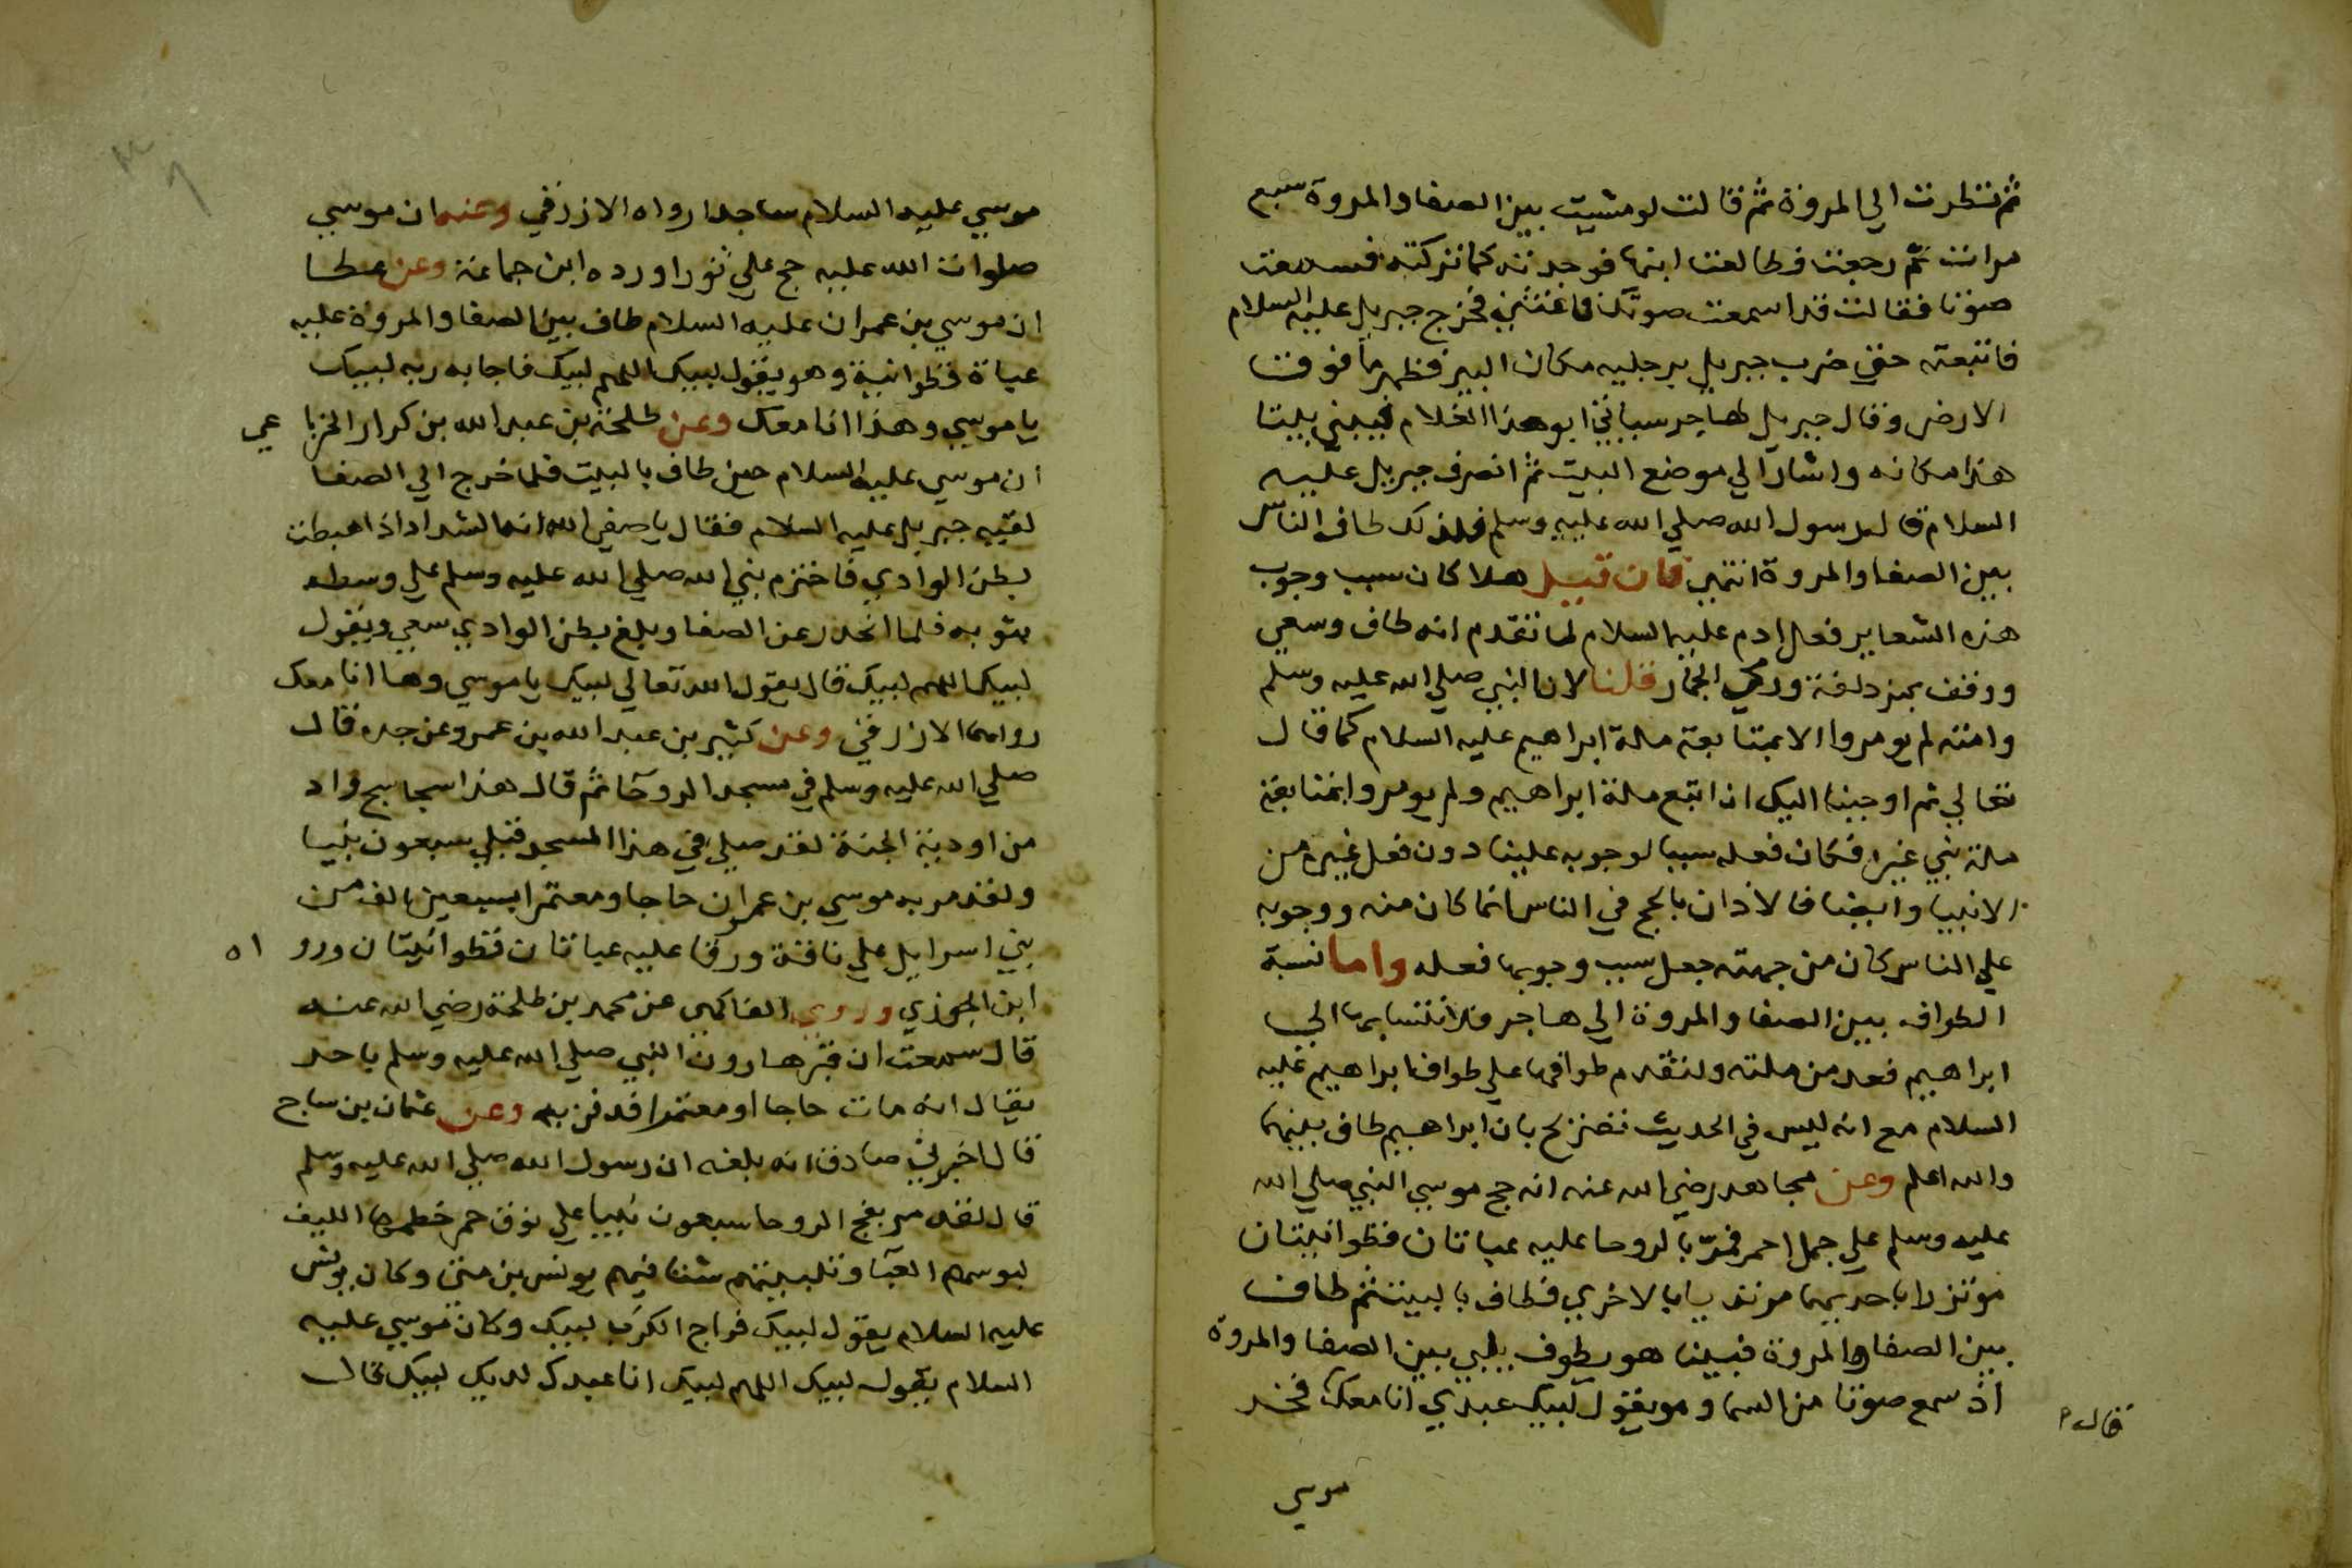 ثم نظرت الي المروة ثم قالت لو مشيت بين الصفا والمروة سبع
مرات ثم رجعت فطالعت ابنها فوجدته كما تركته فسمعت
صوتا فقالت قد اسمعت صوتك فاغثني فخرج جبريل عليه السلام
فاتبعته حتي ضرب جبريل برجليه مكان البير فظهر ماء فوق
الارض وقال جبريل لهاجر سياتي ابو هذا الغلام فيبني بيتا
هذا مكانه واشار الي موضع البيت ثم انصرف جبريل عليه
السلام قال رسول الله صلي الله عليه وسلم فلذلك طاف الناس
بين الصفا والمروة انتهي فان قيل هلا كان سبب وجوب
هذه الشعاير فعل ادم عليه السلام لما تقدم انه طاف وسعي
ووقف بمزدلفة ورمي الجمار قلنا لان النبي صلي الله عليه وسلم
وامته لم يومروا الا بمتابعة ملة ابراهيم عليه السلام كما قال
تعالي ثم اوحينا اليك ان اتبع ملة ابراهيم ولم يومروا بمتابعة
ملة نبي غيره فكان فعله سببا لوجوبه علينا دون فعل غيره من
الانبيا وايضا فالاذان بالحج في الناس انما كان منه ووجوبه
علي الناس كان من جهته جعل سبب وجوبها فعله واما نسبة
الطواف بين الصفا والمروة الي هاجر فلانتسابها الي
ابراهيم فعد من ملته ولتقدم طوافها علي طواف ابراهيم عليه
السلام مع انه ليس في الحديث تصريح بان ابراهيم طاف بينهما
والله اعلم وعن مجاهد رضي الله عنه انه حج موسي النبي صلي الله
عليه وسلم علي جمل احمر فمر بالروحا عليه عباتان قطوانيتان
موتزرا باحديهما مرتديا بالاخري فطاف بالبيت ثم طاف
بين الصفا والمروة فبينا هو يطوف يلبي بين الصفا والمروة
اذ سمع صوتا من السما وهو يقول لبيك عبدي انا معك فخر
قال م
موسي
موسي عليه السلام ساجدا رواه الازرقي وعنه ان موسي
صلوات الله عليه حج علي ثور اورده ابن جماعة وعن عطا
ان موسي بن عمران عليه السلام طاف بين الصفا والمروة عليه
عباة قطوانية وهو يقول لبيك اللهم لبيك فاجابه ربه لبيك
يا موسي وهذا انا معك وعن طلحة بن عبد الله بن كرار الخزا عي
ان موسي عليه السلام حين طاف بالبيت فلما خرج الي الصفا
لقيه جبريل عليه السلام فقال يا صفي الله انه الشد اذا هبطت
بطن الوادي فاحتزم نبي الله صلي الله عليه وسلم علي وسطه
بثوبه فلما انحدر عن الصفا وبلغ بطن الوادي سعي ويقول
لبيك اللهم لبيك قال يقول الله تعالي لبيك يا موسي وها انا معك
رواهما الازرقي وعن كثير بن عبد الله بن عمرو عن جده قال
صلي الله عليه وسلم في مسجد الروحا ثم قال هذا سجاسج واد
من اودية الجنة لقد صلي في هذا المسجد قبلي سبعون نبيا
ولقد مر به موسي بن عمران حاجا ومعتمرا بسبعين الف من
بني اسرايل علي ناقة ورقا عليه عباتان قطوانيتان ورو اه
ابن الجوزي وروي الفاكهي عن محمد بن طلحة رضي الله عنه
قال سمعت ان قبر هارون النبي صلي الله عليه وسلم باحد
يقال انه مات حاجا او معتمرا فدفن به وعن عثمان بن ساج
قال اخبرني صادق انه بلغه ان رسول الله صلي الله عليه وسلم
قال لقد مر بفج الروحا سبعون نبيا علي نوق حمر خطمها الليف
لبوسهم العبا وتلبيتهم شتا فيهم يونس بن متي وكان يونس
عليه السلام يقول لبيك فراج الكرب لبيك وكان موسي عليه
السلام يقول لبيك اللهم لبيك انا عبدك لديك لبيك قال